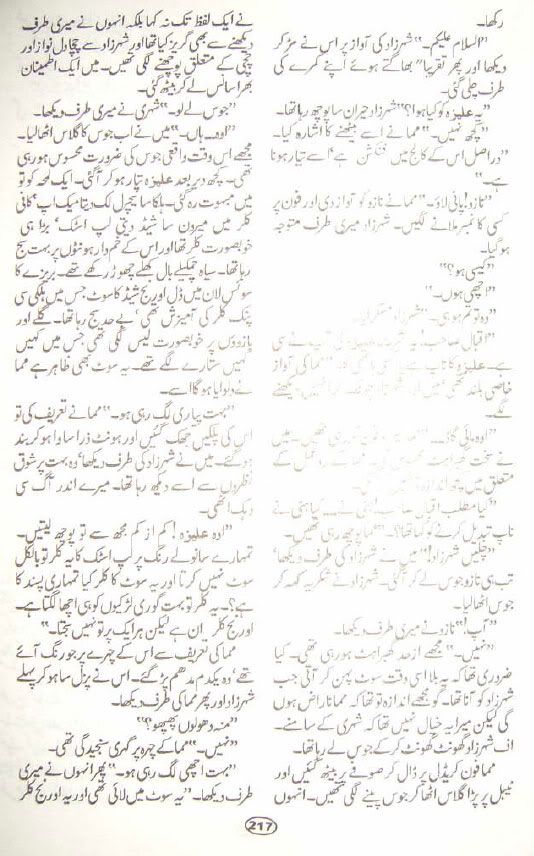 رکھا۔
”السلام علیکم۔“ شہزاد کی آواز پر اس نے مڑ کر
دیکھا اور پھر تقریباً ”بھاگتے ہوئے اپنے کمرے کی
طرف چلی گئی۔
”یہ علیزہ کو کیا ہوا؟“ شہزاد حیران سا پوچھ رہا تھا۔
”کچھ نہیں۔“ ممانے اسے بیٹھنے کا اشارہ کیا۔
”دراصل اس کے کالج میں فنکشن ہے‘ اسے تیار ہونا
ہے۔“
”نازو! پانی لاؤ۔“ ممانے نازو کو آواز دی اور فون پر
کسی کا نمبر ملانے لگیں۔ شہزاد میری طرف متوجہ
ہو گیا۔
”کیسی ہو؟“
”اچھی ہوں۔“
”وہ تو تم ہو ہی۔“ شہزاد
”اقبال صاحب!
ہے۔ علیزہ کا ناپ مما کی آواز
خاصی بلند تھی دیکھنے
لگے۔
”اوہ مائی گاڈ۔ تھیں۔“ میں
نے سخت ردِ عمل کے
متعلق میں
”کیا مطلب اقبال صاحب! بیٹی نے۔۔۔ کیا بیٹی نے
ناپ تبدیل کرنے کو کہا تھا؟“ مما پوچھ رہی تھیں۔
”چلیں شہزاد!“ میں نے شہزاد کی طرف دیکھا‘
تب ہی نازو جوس لے کر آگئی۔ شہزاد نے شکریہ کہہ کر
جوس اٹھا لیا۔
”آپ!“ نازو نے میری طرف دیکھا۔
”نہیں۔“ مجھے از حد گھبراہٹ ہو رہی تھی۔ کیا
ضروری تھا کہ یہ بلا اسی وقت سوٹ پہن کر آتی جب
شہزاد کو آنا تھا۔ گو مجھے اندازہ تو تھا کہ مما ناراض ہوں
گی لیکن میرا یہ خیال نہیں تھا کہ شہری کے سامنے۔
اف شہزاد گھونٹ گھونٹ کر کے جوس لے رہا تھا۔
مما فون کریڈل پر ڈال کر صوفے پر بیٹھ گئیں اور
ٹیبل پر پڑا گلاس اٹھا کر جوس پینے لگی تھیں۔ انہوں
نے ایک لفظ تک نہ کہا بلکہ انہوں نے میری طرف
دیکھنے سے بھی گریز کیا تھا اور شہزاد سے چچا دل نواز اور
چچی کے متعلق پوچھنے لگی تھیں۔ میں ایک اطمینان
بھرا سانس لے کر بیٹھ گئی۔
”جوس لے لو۔“ شہری نے میری طرف دیکھا۔
”اوہ۔ ہاں۔“ میں نے اب جوس کا گلاس اٹھا لیا۔
مجھے اس وقت واقعی جوس کی ضرورت محسوس ہو رہی
تھی۔ کچھ دیر بعد علیزہ تیار ہو کر آگئی۔ ایک لمحہ کو تو
میں مبہوت رہ گئی۔ ہلکا سا نیچرل لک دیتا میک اپ‘ کافی
کلر میں میرون سا شیڈ دیتی لپ اسٹک‘ بڑا ہی
خوبصورت کلر تھا اور اس کے خم دار ہونٹوں پر بہت سج
رہا تھا۔ سیاہ چمکیلے بال کھلے چھوڑ رکھے تھے۔ بریزے کا
سوئس لان میں ڈل اورنج شیڈ کا سوٹ جس میں ہلکی سی
پنک کلر کی آمیزش تھی‘ بے حد سج رہا تھا۔ گلے اور
بازوؤں پر خوبصورت لیس لگی تھی جس میں کہیں
کہیں ستارے لگے تھے۔ یہ سوٹ بھی ظاہر ہے مما
نے دلوایا ہو گا اسے۔
”بہت پیاری لگ رہی ہو۔“ ممانے تعریف کی تو
اس کی پلکیں جھک گئیں اور ہونٹ ذرا سا وا ہو کر بند
ہو گئے۔ میں نے شہزاد کی طرف دیکھا‘ وہ بہت پر شوق
نظروں سے اسے دیکھ رہا تھا۔ میرے اندر آگ سی
دہک اٹھی۔
”اوہ علیزہ! کم از کم مجھ سے تو پوچھ لیتیں۔
تمہارے سانولے رنگ پر لپ اسٹک کا یہ کلر تو بالکل
سوٹ نہیں کرتا اور یہ سوٹ کا کلر کیا تمہاری پسند کا
ہے؟۔ یہ کلر تو بہت گوری لڑکیوں کو ہی اچھا لگتا ہے۔
اورنج کلر اِن ہے لیکن ہر ایک پر تو نہیں سجتا۔“
مما کی تعریف سے اس کے چہرے پر جو رنگ آئے
تھے‘ وہ یکدم مدھم پڑ گئے۔ اس نے پزل سا ہو کر پہلے
شہزاد اور پھر مما کی طرف دیکھا۔
”منہ دھو لوں پھپھو؟“
”نہیں۔“ مما کے چہرہ پر گہری سنجیدگی تھی۔
”بہت اچھی لگ رہی ہو۔“ پھر انہوں نے میری
طرف دیکھا۔ ”یہ سوٹ میں لائی تھی اور یہ اورنج کلر
217